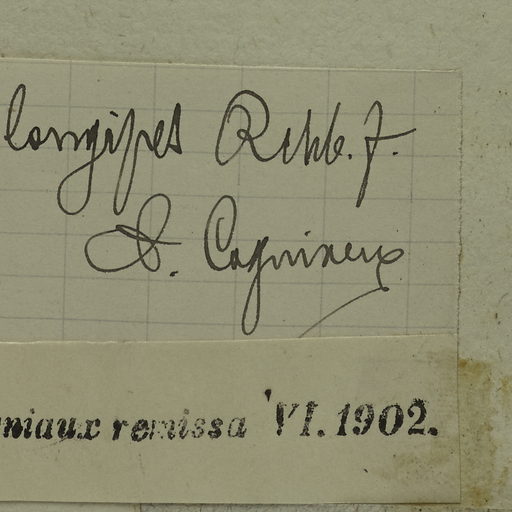 longipes Rchb. f.
A. Cogniaux
niaux remissa VI. 1902.